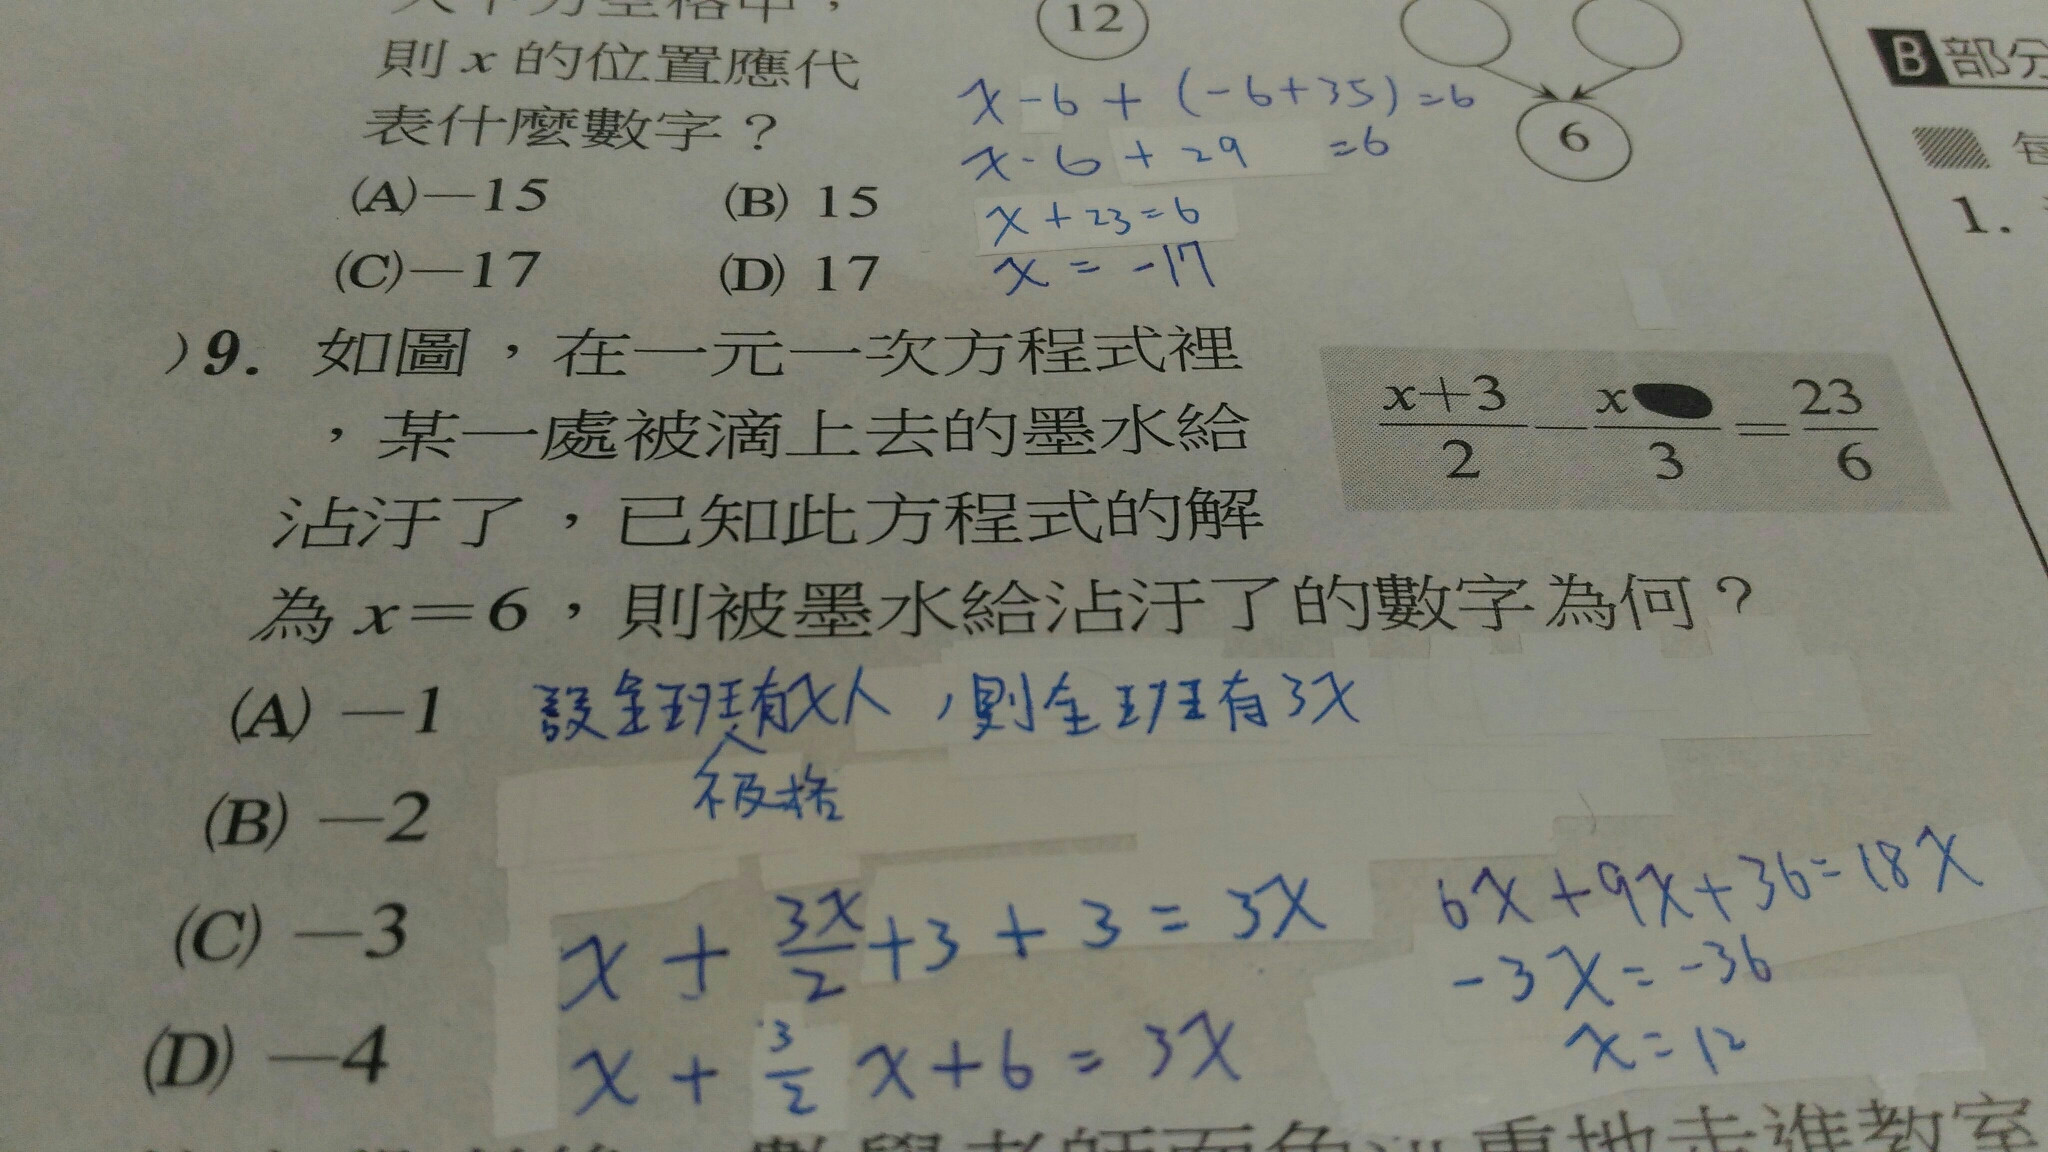 12
則 x 的位置應代
表什麼數字？
(A)－15 (B) 15
(C)－17 (D) 17
x-6+(-6+35)=6
x-6+29 =6
x+23=6
x = -17
6
B 部分
1.
)9. 如圖，在一元一次方程式裡
，某一處被滴上去的墨水給
沾汙了，已知此方程式的解
為 x＝6，則被墨水給沾汙了的數字為何？
x+3/2 － x/3 ＝ 23/6
(A) －1
(B) －2
(C) －3
(D) －4
設全班有x人，則全班有3x
x + 3x/2 +3 + 3 = 3x
x + 3/2 x+6 = 3x
6x+9x+36=18x
-3x=-36
x=12